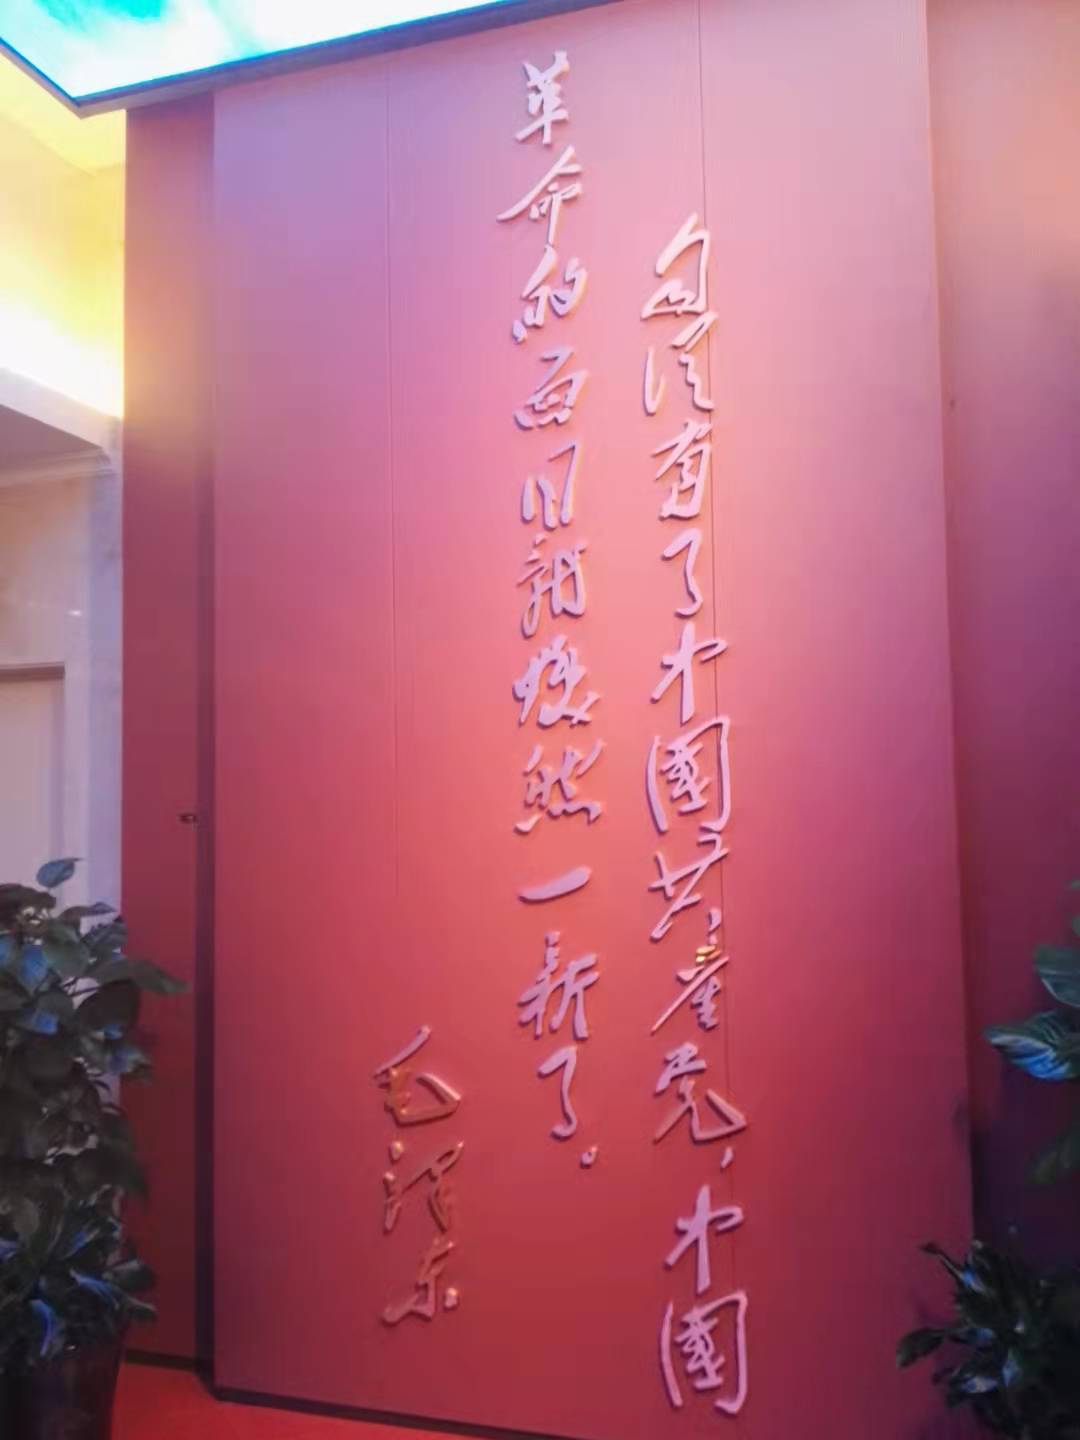 自從有了中國共產党，中國
革命的面目就焕然一新了。
毛泽东